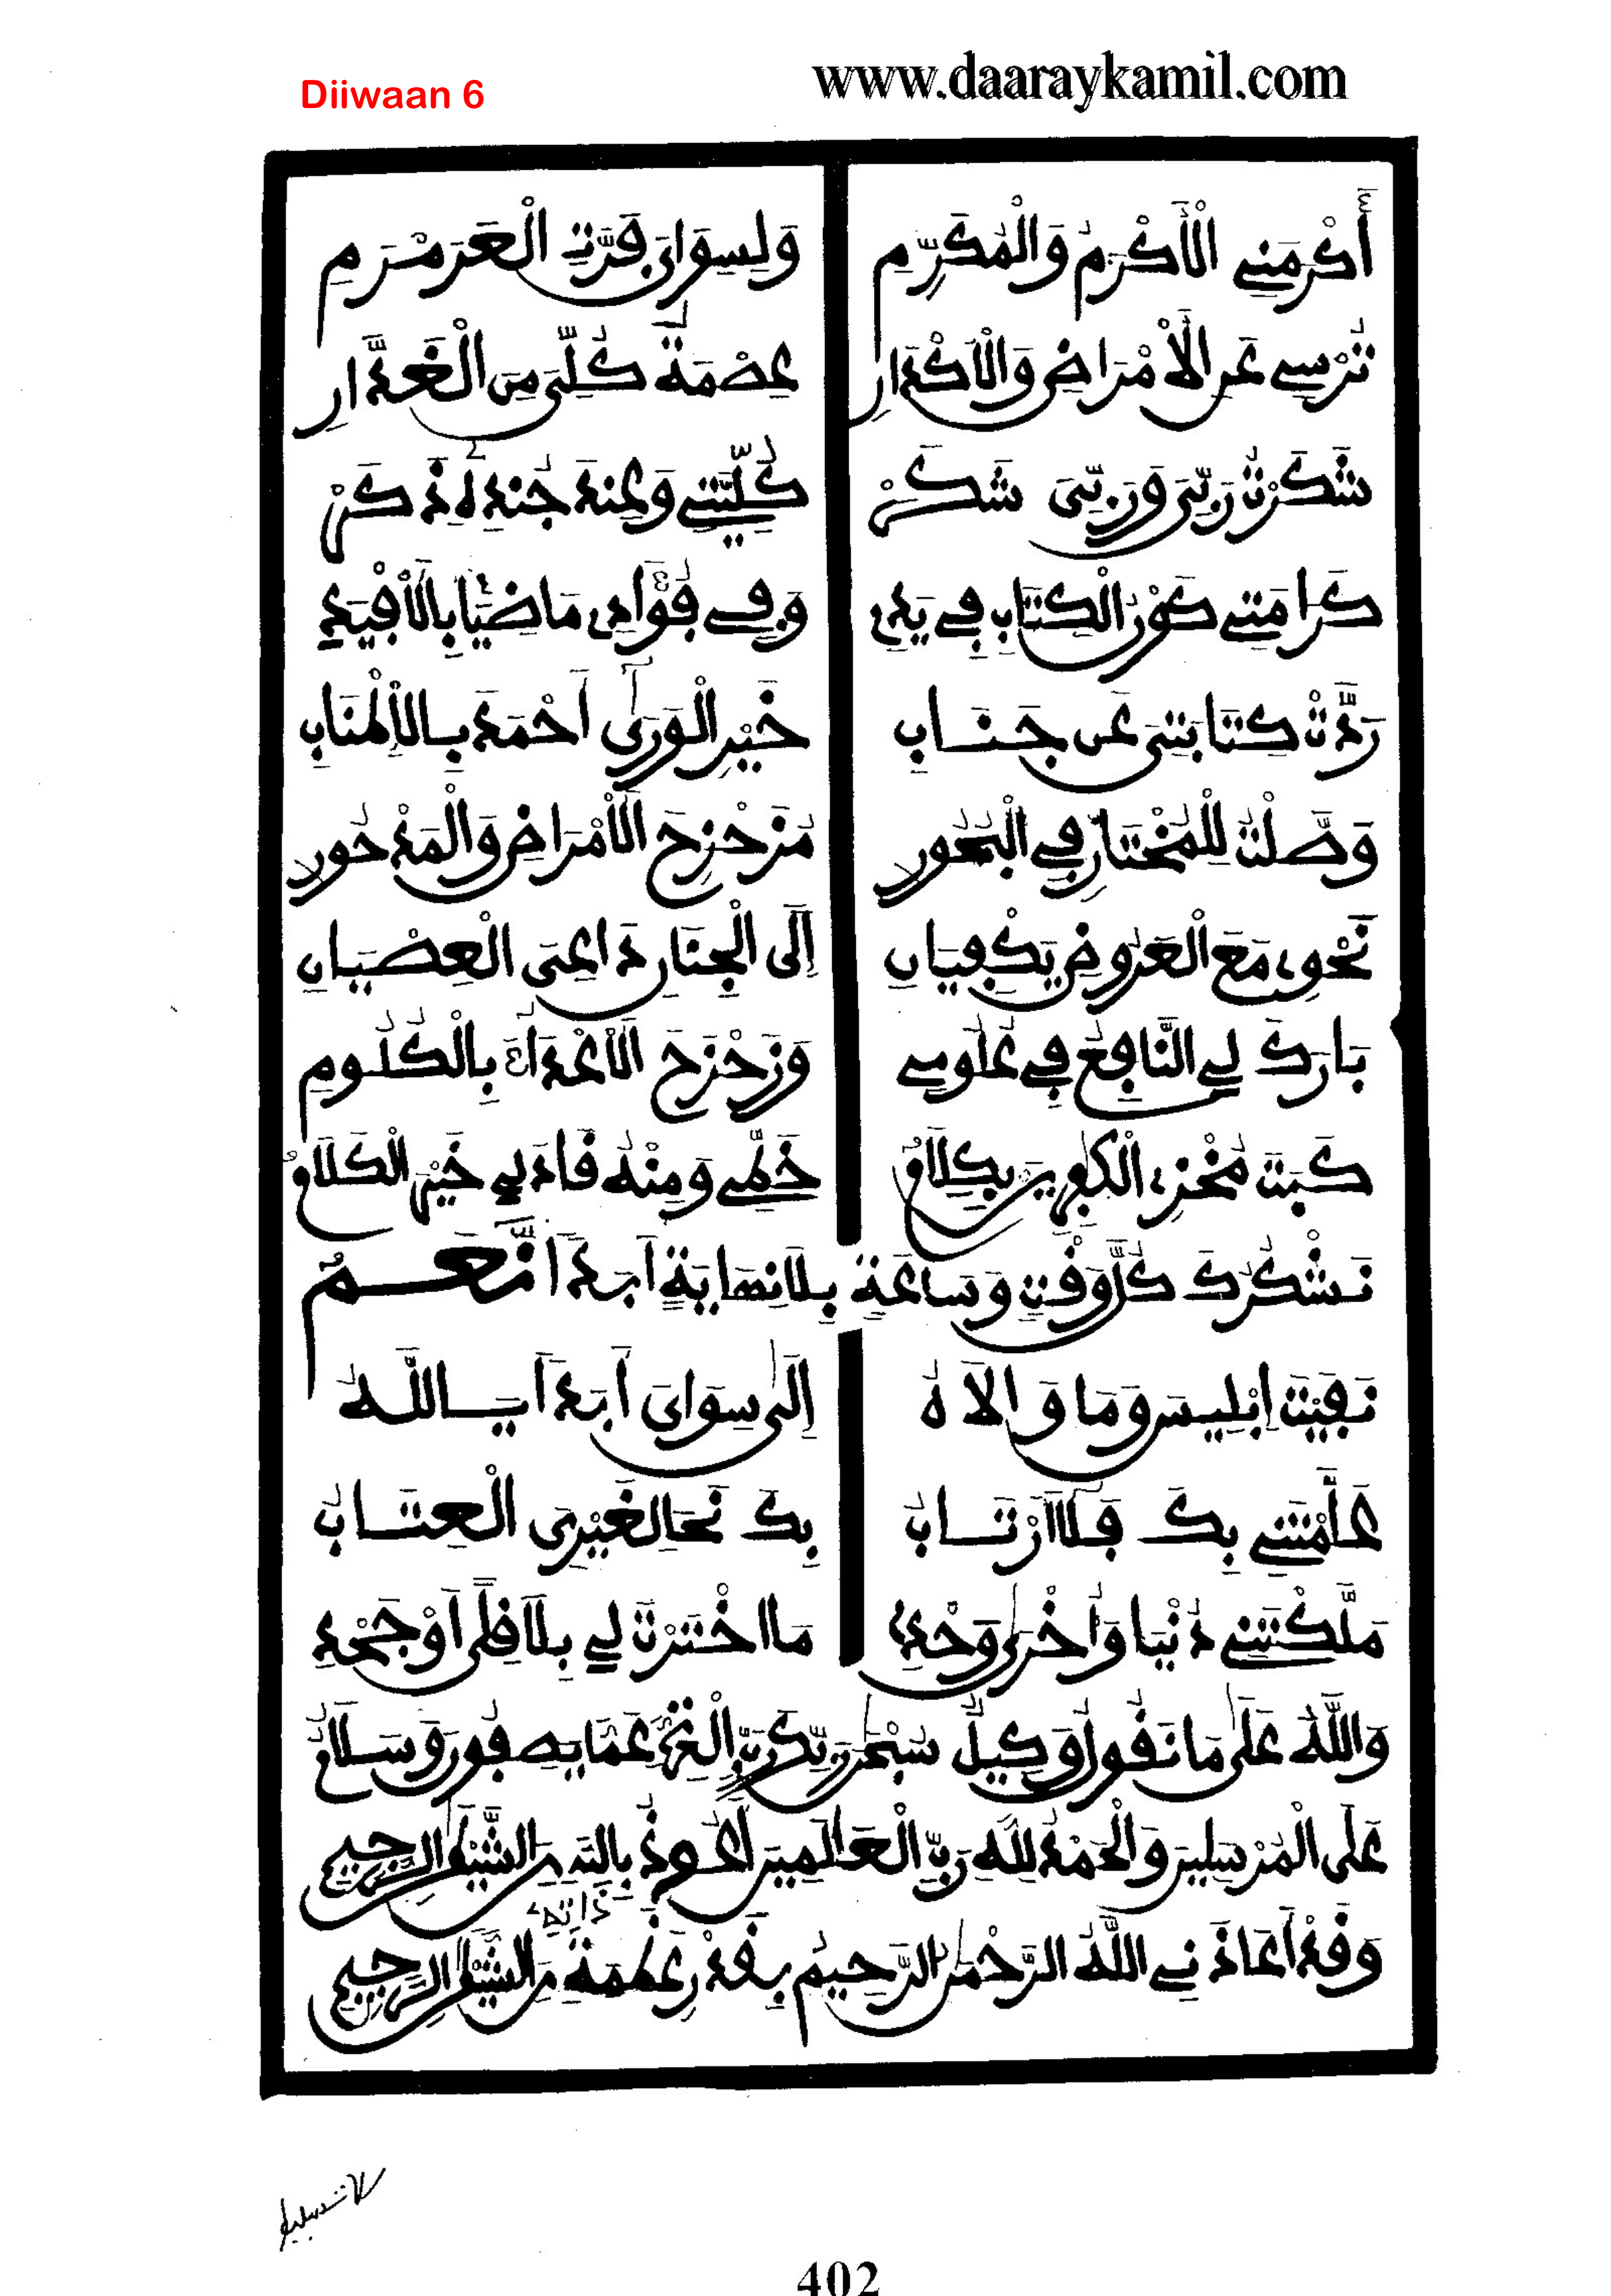 Diiwaan 6
www.daaraykamil.com
أَكْرَمَنِي الْأَكْرَمُ وَالْمُكَرِّمِ وَلِسِوَايَ فَرَّتِ الْعَرَمْرَمِ
تُرْسِي عَنِ الْأَمْرَاضِ وَالْأَكْدَارِ عِصْمَةُ كُلِّي مِنَ الْغَدَّارِ
شَكَرْتُ رَبِّيَ وَرَبِّيَ شَكَرْ كُلِّيَّتِي وَعِنْدَ جُنْدِهِ ذَكَرْ
كَرَامَتِي كَوْنُ الْكِتَابِ فِي يَدِي وَفِي فُؤَادِي مَاضِيًا بِالْأَفْيَدِ
رَدَّتْ كِتَابَتِي عَنِ جَنَابِ خَيْرِ الْوَرَى أَحْمَدَ بِالْإِطْنَابِ
وَصَّلْتُ لِلْمُخْتَارِ فِي الْبُحُورِ مُزَحْزِحَ الْأَمْرَاضِ وَالْمَدْحُورِ
نَحْوِي مَعَ الْعَرُوضِ يَكْفِيَانِ إِلَى الْجِنَانِ دَاعِيَ الْعِصْيَانِ
بَارَكَ لِي النَّافِعُ فِي عُلُومِي وَزَحْزَحَ الْأَعْدَاءَ بِالْكُلُومِ
كَبَتَ مُخْزِي الْكَافِرِينَ بِكِلَامْ خَطِّي وَمِنْهُ قَادَ لِي خَيْرَ الْكَلَامْ
نَشْكُرُكَ كُلَّ وَقْتٍ وَسَاعَةٍ بِلَا نِهَايَةٍ أَبَدًا نَّعَمْ
نَفَيْتَ إِبْلِيسَ وَمَا وَالَاهُ إِلَى سِوَايَ أَبَدًا يَا اللَّهُ
عَلَّمْتَنِي بِكَ فَلَا أَرْتَابُ بِكَ نَحَا لِغَيْرِيَ الْعِتَابُ
مَلَّكْتَنِي دُنْيَا وَأُخْرَى وَحْدِي مَا اخْتَرْتَ لِي بِلَا قِلًى أَوْ جَحْدِ
وَاللَّهُ عَلَى مَا نَقُولُ وَكِيلٌ سُبْحَانَ رَبِّكَ رَبِّ الْعِزَّةِ عَمَّا يَصِفُونَ وَسَلَامٌ
عَلَى الْمُرْسَلِينَ وَالْحَمْدُ لِلَّهِ رَبِّ الْعَالَمِينَ أَعُوذُ بِاللَّهِ مِنَ الشَّيْطَانِ الرَّجِيمِ
وَقَدْ أَعَاذَنِي اللَّهُ الرَّحْمَنُ الرَّحِيمُ بِقَدْرِ عَظَمَةِ ذَاتِهِ مِنَ الشَّيْطَانِ الرَّجِيمِ
402